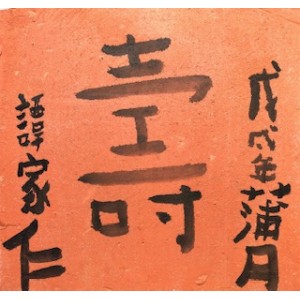 戊戌年蒲月
壽
家仁